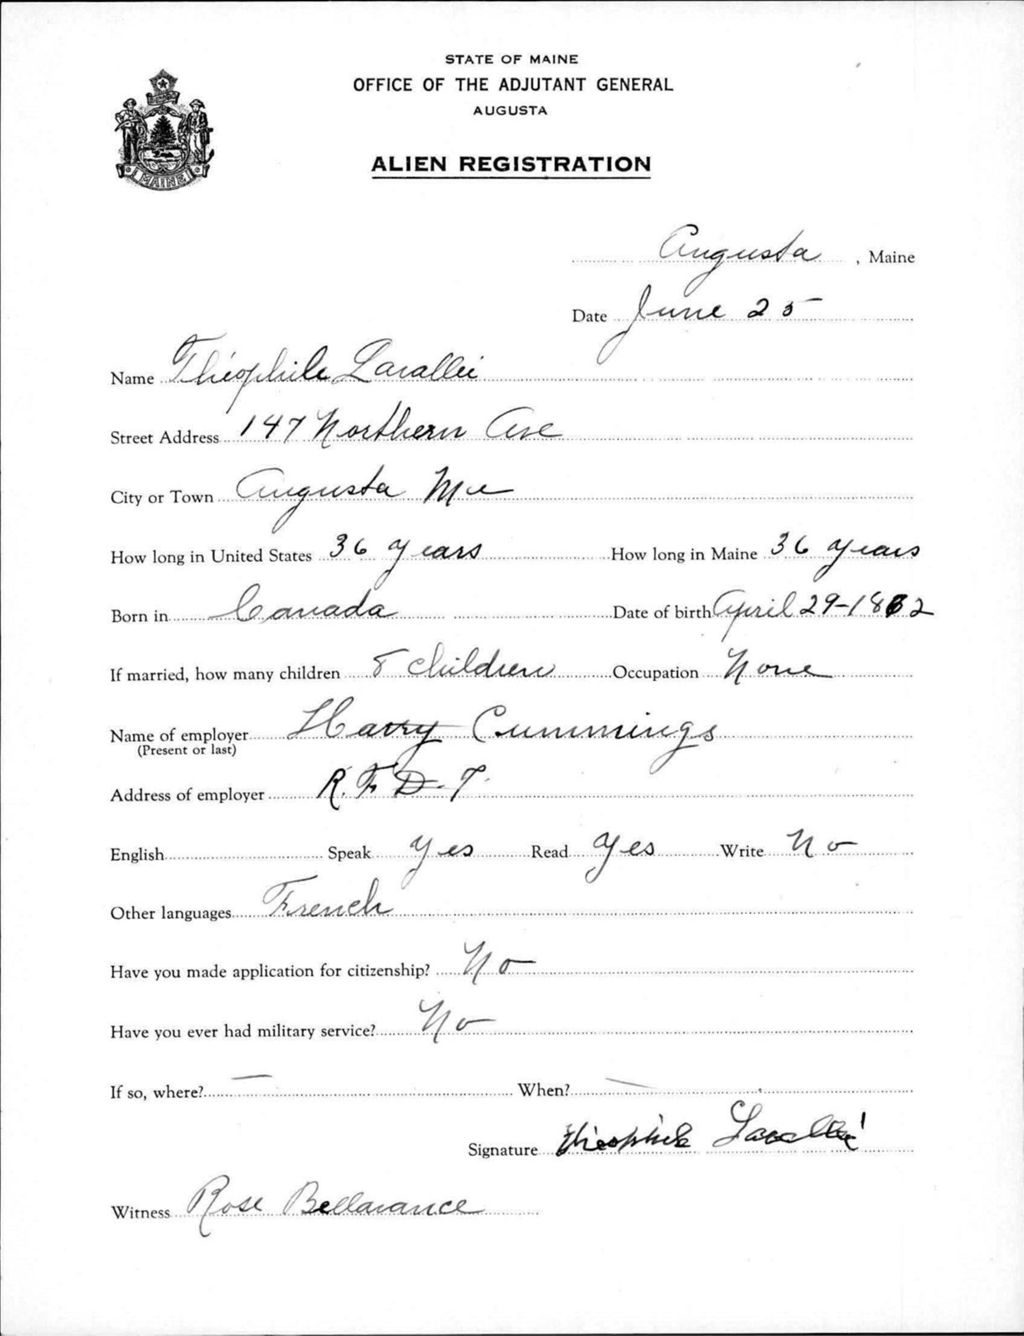 STATE OF MAINE
OFFICE OF THE ADJUTANT GENERAL
AUGUSTA
ALIEN REGISTRATION
MAINE
Augusta, Maine
Date June 25
Name Théophile Lavallée
Street Address 147 Northern Ave
City or Town Augusta Me
How long in United States 36 years How long in Maine 36 years
Born in Canada Date of birth April 29-
If married, how many children 8 children Occupation None
Name of employer Harry Cummings
(Present or last)
Address of employer R.F.D.
English Speak Yes Read Yes Write No
Other languages French
Have you made application for citizenship? No
Have you ever had military service? No
If so, where? — When? —
Signature Théophile Lavallée
Witness Rose Bellavance